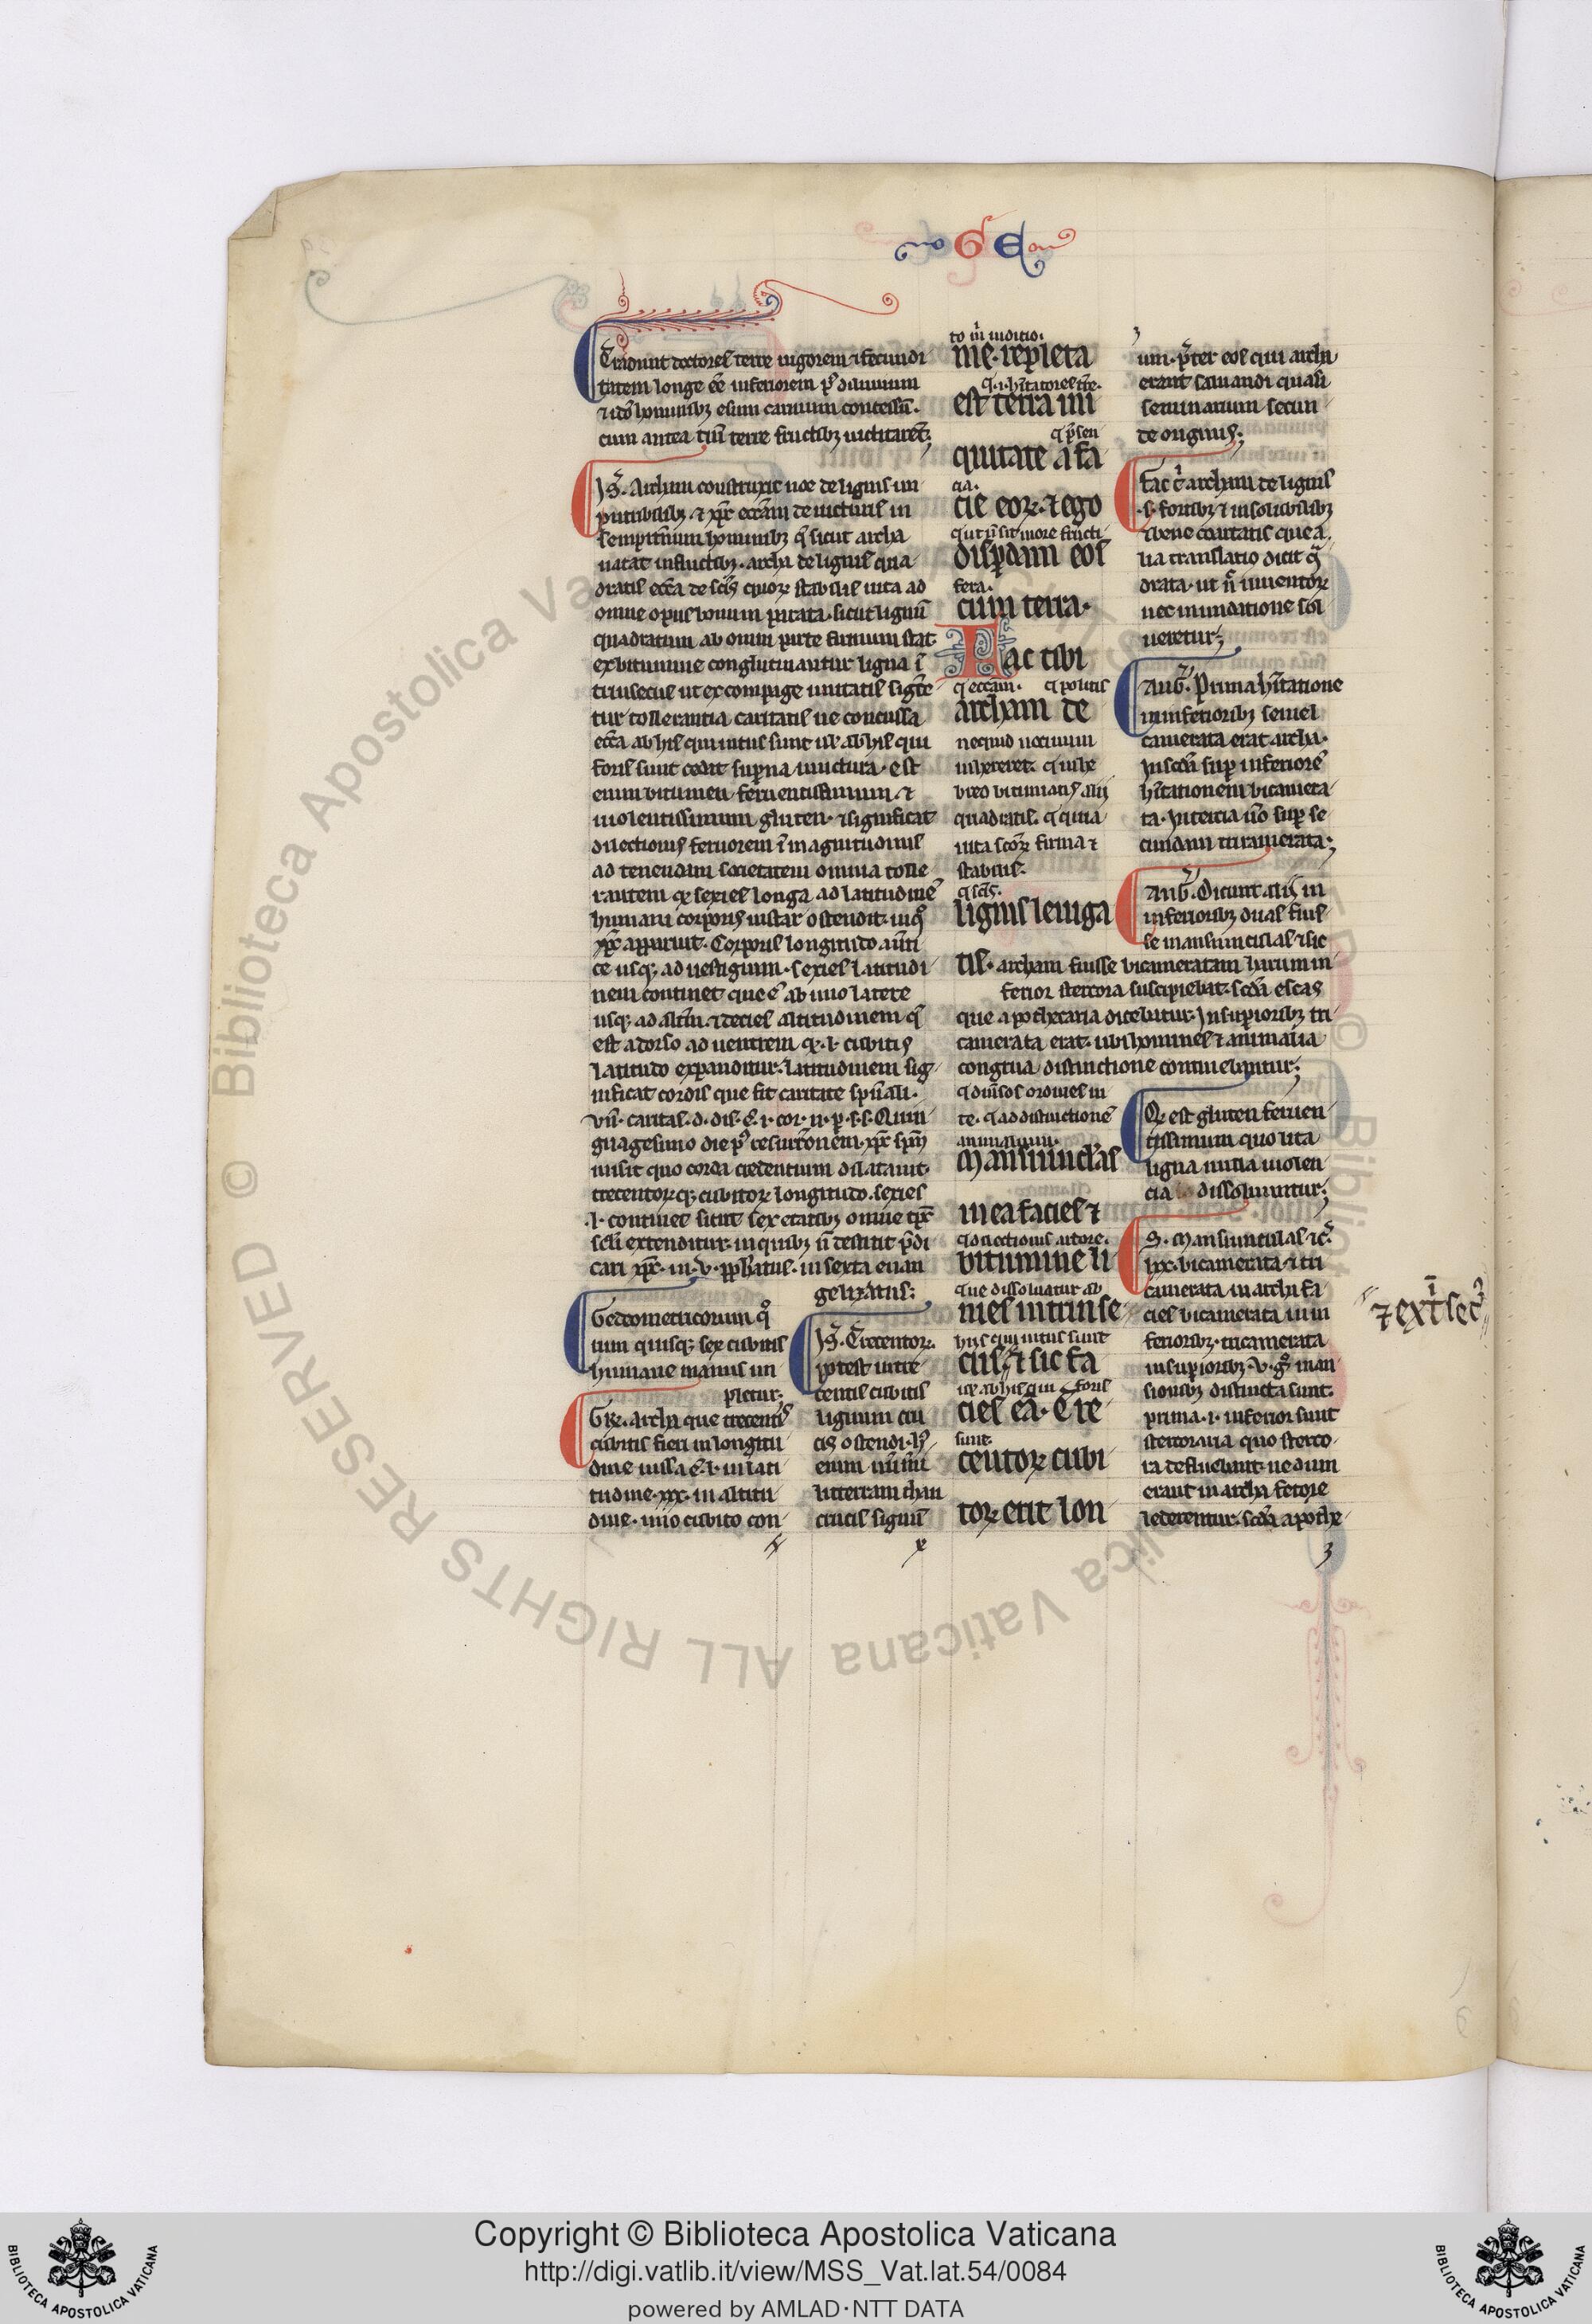 GE
Tradunt doctores terre uigorem ⁊ fecundi
tatem longe ee̅ inferiorem p̾ diluuium
⁊ ido̾ hominibꝫ esum carnium concessu̅.
cum antea tm̅ terre fructibꝫ uictitaret.
Archam construxit noe de lignis im
putribilibꝫ. ⁊ xp̅c ecc̅am de uicturis in
sempit̾num hominibꝫ q̾ sicut archa
natat in fluctibꝫ. archa de lignis qua
dratis ecc̅a de sc̅is quoꝝ stabilis uita ad
omne opus bonum parata. sicut lignu̅
quadratum ab omni parte firmum stat
ex bitumine conglutinantur ligna i̅
trinsecus ut ex compage unitatis
tur tollerantia caritatis ne concussa
ecc̅a ab his qui intus sunt ul̾ ab his qui
foris sunt cedat superna iunctura. est
enim bitumen feruentissimum ⁊
uiolentissimum gluten. ⁊ significat
dilectionis feruorem i̅ magnitudinis
ad tenendam societatem omnia tolle
rantem. qꝫ sexies longa ad latitudine̅
humani corporis instar ostendit. in q̊
xp̅c apparuit. Corporis longitudo a uerti
ce usqꝫ ad uestigium. sexies latitudi
nem continet que e̅ ab uno latere
usqꝫ ad alt̾m. ⁊ decies altitudinem q̾
est a dorso ad uentrem. qꝫ .l. cubitis
latitudo expanditur. latitudinem sig
nificat cordis que fit caritate sp̅uali.
vn̅. caritas. d. dif. e̅. i. cor. n. p. s. s. Quin
quagesimo die p̾ resurrc̅onem. xp̅c sp̅m
misit quo corda credentium dilatauit.
trecentoꝝ qꝫ cubitoꝝ longitudo. sexies
.l. continet sicut sex etatibꝫ omne tp̅c
scl̅i extenditur. in quibꝫ n̅ destitit p̅di
cari xp̅c. in .v. pph̅atus. in sexta euan
gelizatus;
Geometricorum q̊
rum quisqꝫ sex cubitis
humane manus im
pletur;
Gꝛ̅. archa que trecentis
cubitis fieri in longitu
dine iussa e̅. l. in lati
tudine. xxx. in altitu
dine. uno cubito con
Js̾. Trecentoꝝ.
potest intre
centis cubitis
lignum cru
cis ostendi. h̾
enim num̅
litteram thau
crucis signu̅
to m̅ iudicio.
me. repleta
est terra ini
quitate a fa
cia.
cie eoꝝ. ⁊ ego
disp̱dam eos
cum terra.
Fac tibi
q̾ ecc̅am. q̾ politis
archam de
nequid uacuum
quadratis. q̾ quia
uita sc̅oꝝ firma ⁊
stabilis.
q̾ sc̅is.
lignis leuiga
tis. archam fuisse bicameratam harum in
ferior stercora suscipiebat. scd̅a escas
que apothecaria dicebatur. In superioribꝫ tri
camerata erat. ubi homines ⁊ animalia
congrua distinctione continebantur;
q̾ diuisos ordines in
te. q̾ ad distinctione̅
animalium.
Mansiunclas
in ea facies ⁊
q̾ dilectionis ardore.
bitumine li
que dissoluatur ab
nies intrinse
his qui intus sunt
cus. ⁊ sic fa
ue ab his qui foris
cies ea̅. Tre
sunt.
centoꝝ cubi
toꝝ erit lon
um. p̾ter eos qui archa
erant saluandi quasi
seminarium secun
de originis;
Fac t̾ archam de lignis
.s. fortibꝫ ⁊ insolubilibꝫ
⁊ bene coartatis que a
lia translatio dicit q̾
drata. ut n̅ uentoꝝ
nec inundatione sol
ueretur;
Aug̾. Prima h̾itatione
in inferioribꝫ semel
camerata erat archa.
In scd̅a sup̱ inferiore̅
h̾itationem bicamera
ta. In tercia u̅o sup̱ se
cundam tricamerata;
Aug̾. Dicunt alij in
inferioribꝫ duas fuis
se mansiunculas ⁊ sic
Qꝫ est gluten feruen
tissimum quo lita
ligna nulla uiolen
cia dissoluuntur;
S. Mansiunculas ⁊c̾.
lxx. bicamerata ⁊ tri
camerata in archa fa
cies bicamerata in in
ferioribꝫ. tricamerata
in superioribꝫ. v. g̊ man
sionibꝫ distincta sunt.
prima .i. inferior sunt
stercoraria quo sterco
ra defluebant. ne dum
erant in archa fetore
lederentur. scd̅a apothe
⁊ ext̅sec̾
Copyright © Biblioteca Apostolica Vaticana
http://digi.vatlib.it/view/MSS_Vat.lat.54/0084
powered by AMLAD·NTT DATA
BIBLIOTECA APOSTOLICA VATICANA
BIBLIOTECA APOSTOLICA VATICANA
© Biblioteca Apostolica Vaticana ALL RIGHTS RESERVED